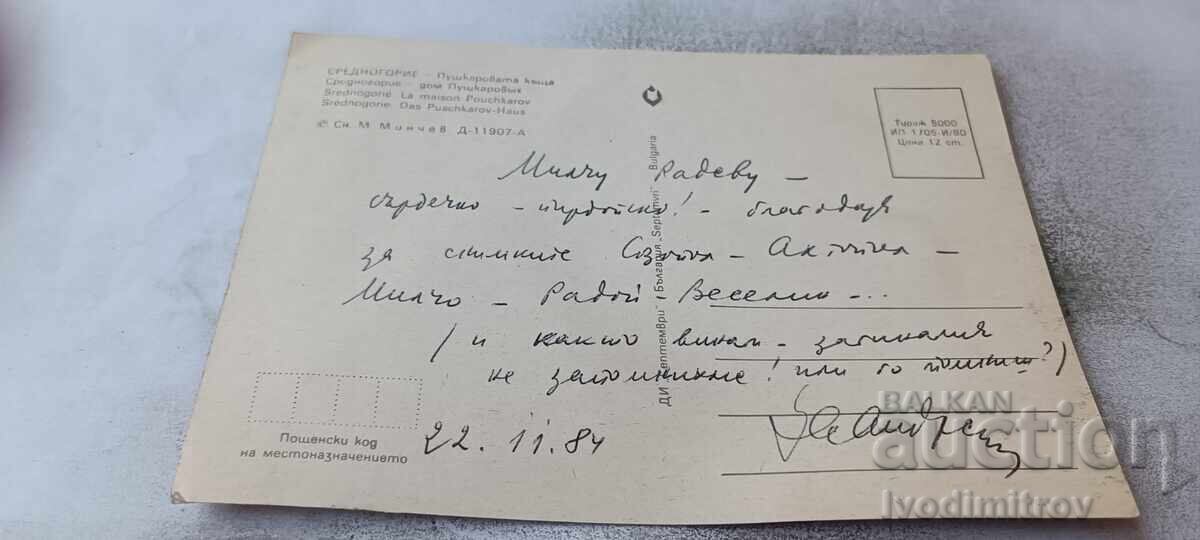 СРЕДНОГОРИЕ – Пушкаровата къща
Средногорие – дом Пушкаровых
Srednogorie La maison Pouchkarov
Srednogorie. Das Puschkarov-Haus
© Сн. М. Минчев Д-11907-А
ДИ „Септември" България „Septemvri" Bulgaria
Тираж 5000
ИП 1705-И/80
Цена 12 ст.
Милчу Радеву –
сърдечно – ! – благодаря
за снимките –
Милчо – Радой – Веселин – ...
/ и както винаги – загиналия
не запомнихме! или го помниш?)
22.11.84
Пощенски код
на местоназначението
BALKAN
auction
Ivodimitrov